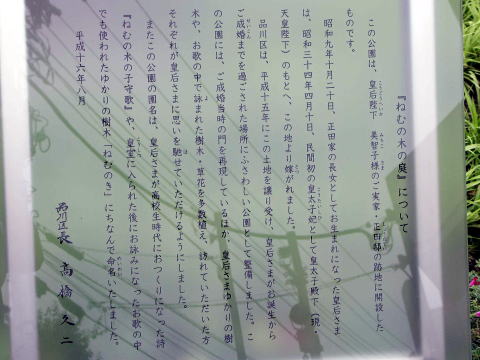 『ねむの木の庭』について
この公園は、皇后陛下 美智子様のご実家・正田邸の跡地に開設した
ものです。
昭和九年十月二十日、正田家の長女としてお生まれになった皇后さま
は、昭和三十四年四月十日、民間初の皇太子妃として皇太子殿下(現・
天皇陛下)のもとへ、この地より嫁がれました。
品川区は、平成十五年にこの土地を譲り受け、皇后さまがお誕生から
ご成婚までを過ごされた場所にふさわしい公園として整備しました。こ
の公園には、ご成婚当時の門を再現しているほか、皇后さまゆかりの樹
木や、お歌の中で詠まれた樹木・草花を多数植え、訪れていただいた方
それぞれが皇后さまに思いを馳せていただけるようにしました。
またこの公園の園名は、皇后さまが高校生時代におつくりになった詩
『ねむの木の子守歌』や、皇室に入られた後にお詠みになったお歌の中
でも使われたゆかりの樹木「ねむのき」にちなんで命名いたしました。
平成十六年八月
品川区長 高橋久二